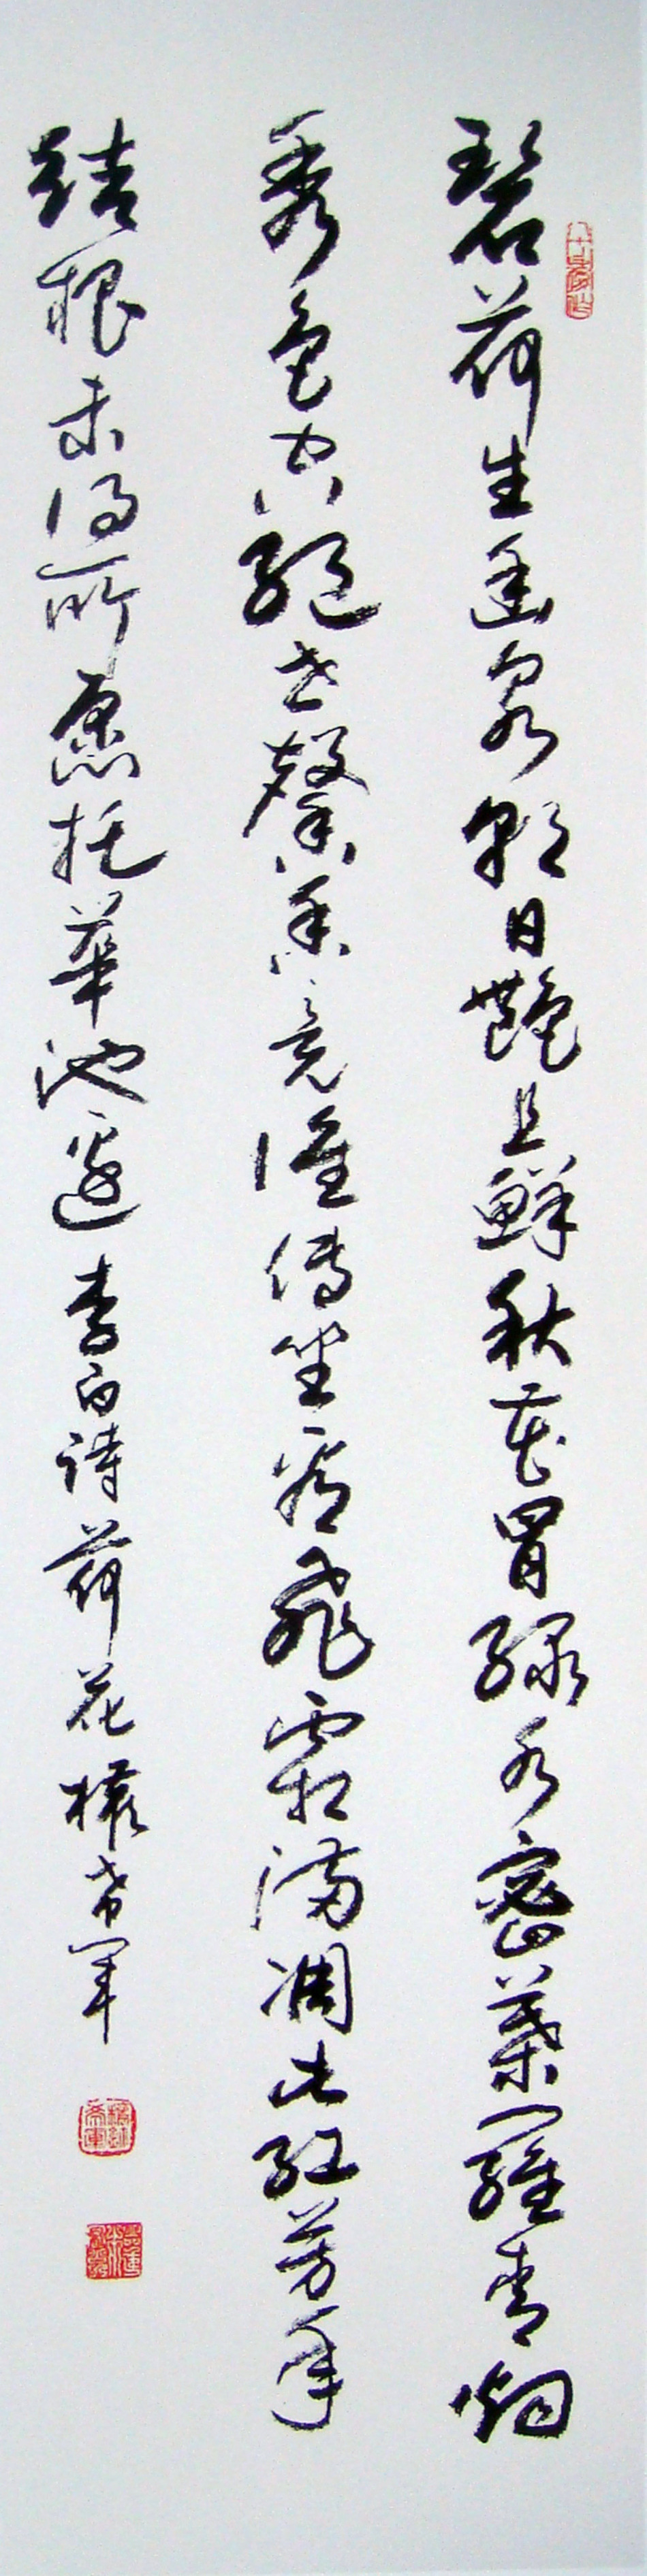 碧荷生幽泉朝日艳且鲜秋花冒绿水密葉羅青烟
秀色空絕世馨香竟谁傳坐看飛霜滿凋此红芳年
结根未得所愿托華池邊李白诗荷花 希军